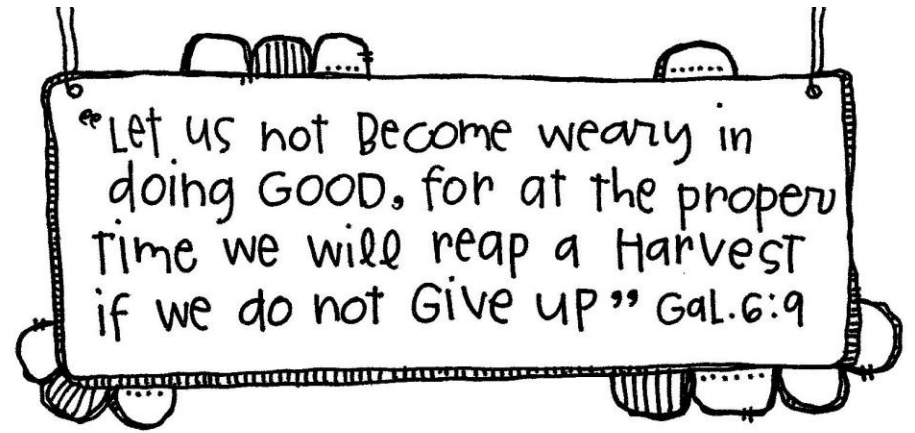 “Let us not Become weary in
doing GOOD, for at the proper
Time we will reap a Harvest
if we do not Give up” Gal.6:9